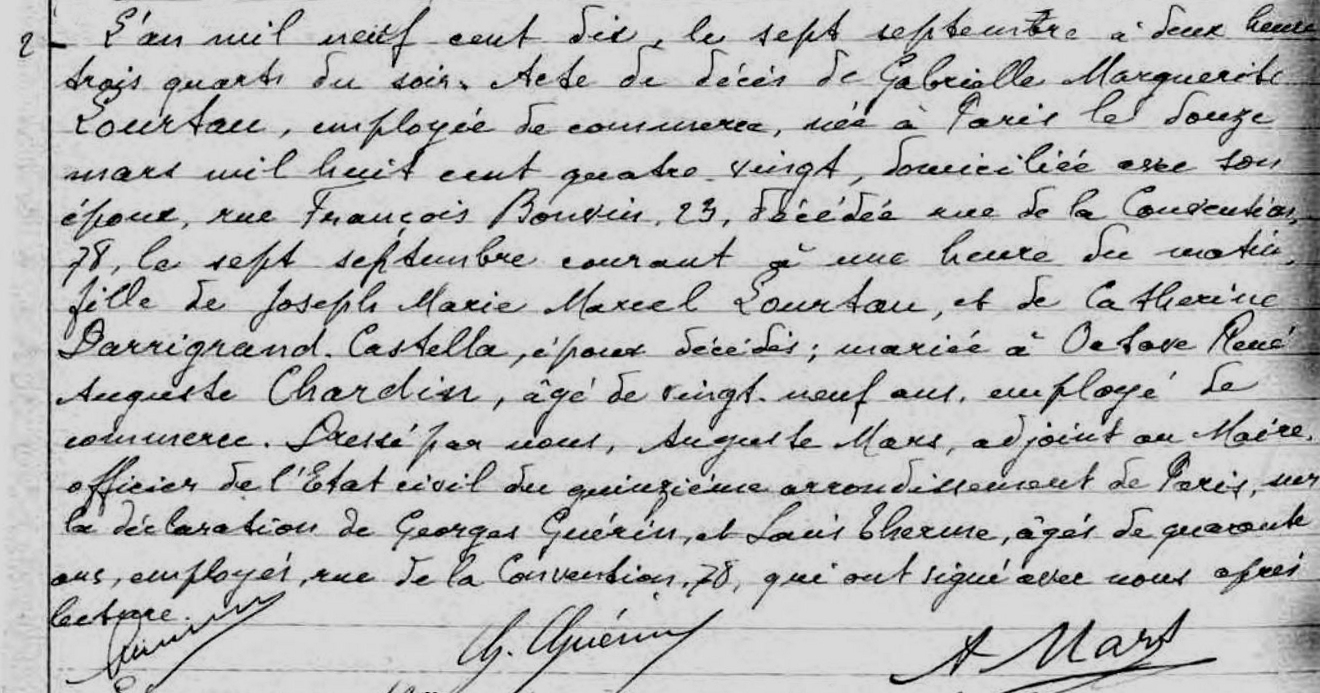 2 - L'an mil neuf cent dix, le sept septembre à deux heure
trois quarts du soir. Acte de décès de Gabrielle Marguerite
Lourtau, employée de commerce, née à Paris le douze
mars mil huit cent quatre-vingt, domiciliée avec son
époux, rue François Bonvin, 23, décédée rue de la Convention,
78, le sept septembre courant à une heure du matin,
fille de Joseph Marie Marcel Lourtau, et de Catherine
Darrigrand-Castella, époux décédés; mariée à Octave René
Auguste Chardin, âgé de vingt-neuf ans, employé de
commerce. Dressé par nous, Auguste Mars, adjoint au Maire,
officier de l'Etat civil du quinzième arrondissement de Paris, sur
la déclaration de Georges Guérin, et Louis Therme, âgés de quarante
ans, employés, rue de la Convention, 78, qui ont signé avec nous après
lecture.
G. Guérin A Mars